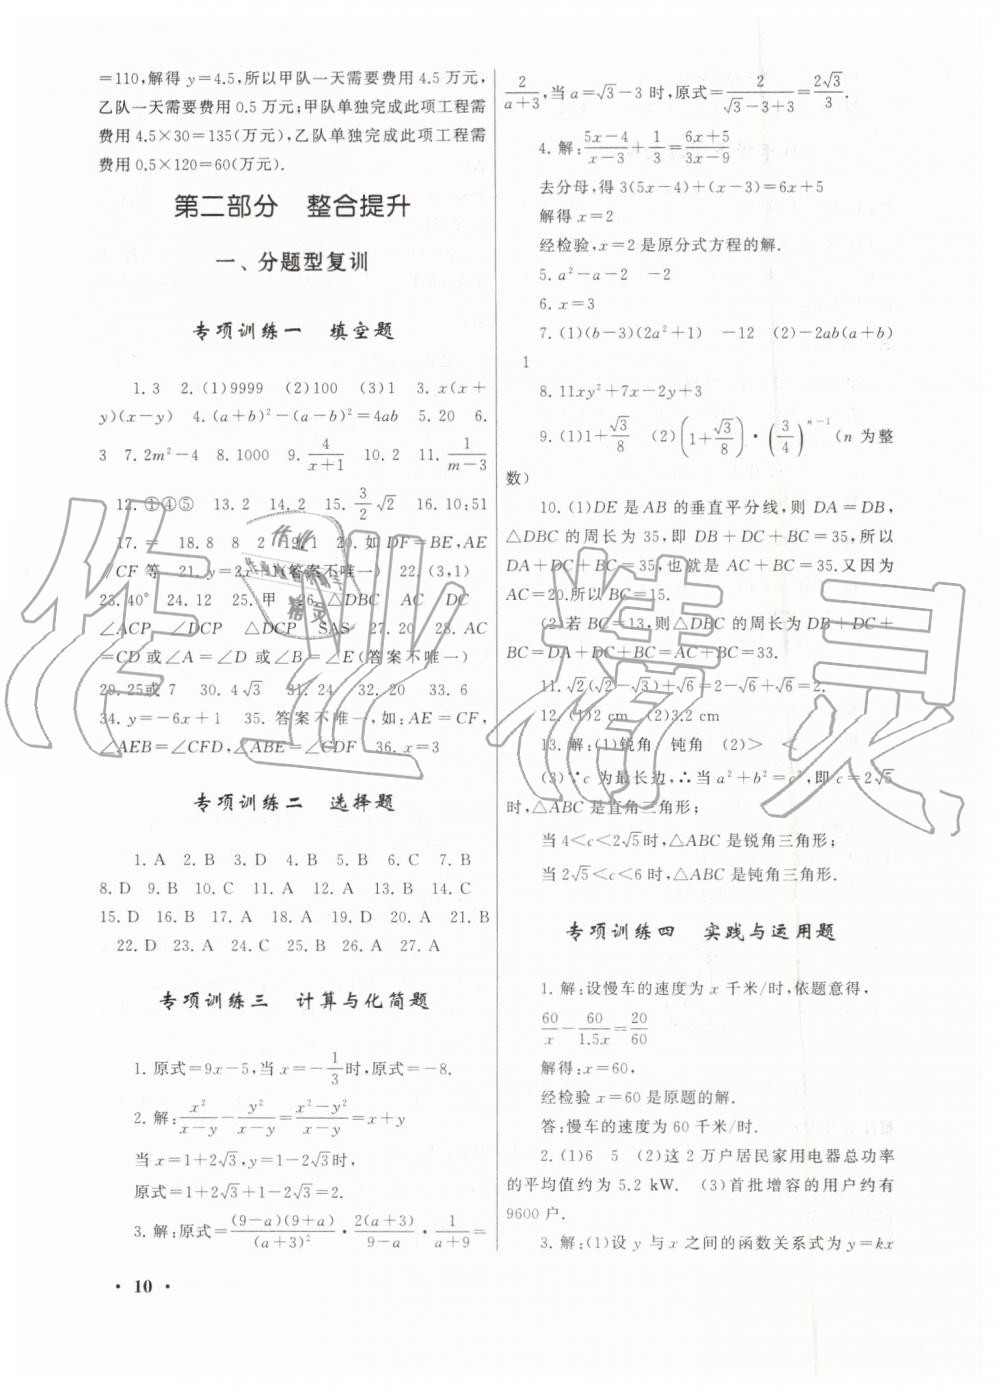 =110,解得 y=4.5,所以甲队一天需要费用 4.5 万元,
乙队一天需要费用 0.5 万元;甲队单独完成此项工程需
费用 4.5×30=135(万元),乙队单独完成此项工程需
费用 0.5×120=60(万元).
第二部分 整合提升
一、分题型复训
专项训练一 填空题
1. 3 2. (1)9999 (2)100 (3)1 3. x(x+
y)(x-y) 4. (a+b)²-(a-b)²=4ab 5. 20 6.
3 7. 2m²-4 8. 1000 9. 4/(x+1) 10. 2 11. 1/(m-3)
12. ①④⑤ 13. 2 14. 2 15. 3/2 √2 16. 10:51
17. = 18. 8 8 2 19. 1 20. 如 DF=BE,AE
=CF 等 21. (答案不唯一) 22. (3,1)
23. 40° 24. 12 25. 甲 26. △DBC AC DC
∠ACP ∠DCP △DCP SAS 27. 20 28. AC
=CD或∠A=∠D或∠B=∠E(答案不唯一)
29. 25或 7 30. 4√3 31. 24 32. 20 33. 6
34. y=-6x+1 35. 答案不唯一,如:AE=CF,
∠AEB=∠CFD,∠ABE=∠CDF 36. x=3
专项训练二 选择题
1. A 2. B 3. D 4. B 5. B 6. C 7. B
8. D 9. B 10. C 11. A 12. A 13. B 14. C
15. D 16. B 17. A 18. A 19. A 20. A 21. B
22. D 23. A 24. B 25. C 26. A 27. A
专项训练三 计算与化简题
1. 原式=9x-5,当 x=-1/3时,原式=-8.
2. 解:x²/(x-y)-y²/(x-y)=(x²-y²)/(x-y)=x+y
当 x=1+2√3,y=1-2√3时,
原式=1+2√3+1-2√3=2.
3. 解:原式=(9-a)(9+a)/(a+3)²·2(a+3)/(9-a)·1/(a+9)=
2/(a+3),当 a=√3-3 时,原式=2/(√3-3+3)=2√3/3.
4. 解:(5x-4)/(x-3)+1/3=(6x+5)/(3x-9)
去分母,得 3(5x-4)+(x-3)=6x+5
解得 x=2
经检验,x=2 是原分式方程的解.
5. a²-a-2 -2
6. x=3
7. (1)(b-3)(2a²+1) -12 (2)-2ab(a+b)
1
8. 11xy²+7x-2y+3
9. (1)1+√3/8 (2)(1+√3/8)·(3/4)ⁿ⁻¹(n 为整
数)
10. (1)DE 是 AB 的垂直平分线,则 DA=DB,
△DBC 的周长为 35,即 DB+DC+BC=35,所以
DA+DC+BC=35,也就是 AC+BC=35.又因为
AC=20.所以BC=15.
(2)若 BC=13,则△DBC 的周长为 DB+DC+
BC=DA+DC+BC=AC+BC=33.
11. √2(√2-√3)+√6=2-√6+√6=2.
12. (1)2 cm (2)3.2 cm
13. 解:(1)锐角 钝角 (2)> <
(3)∵c 为最长边,∴当 a²+b²=c²,即 c=2√5
时,△ABC 是直角三角形;
当 4<c<2√5时,△ABC 是锐角三角形;
当 2√5<c<6 时,△ABC 是钝角三角形.
专项训练四 实践与运用题
1. 解:设慢车的速度为 x 千米/时,依题意得,
60/x-60/1.5x=20/60
解得:x=60,
经检验 x=60 是原题的解.
答:慢车的速度为 60 千米/时.
2. (1)6 5 (2)这 2 万户居民家用电器总功率
的平均值约为 5.2 kW. (3)首批增容的用户约有
9600 户.
3. 解:(1)设 y 与 x 之间的函数关系式为 y=kx
· 10 ·
作业精灵